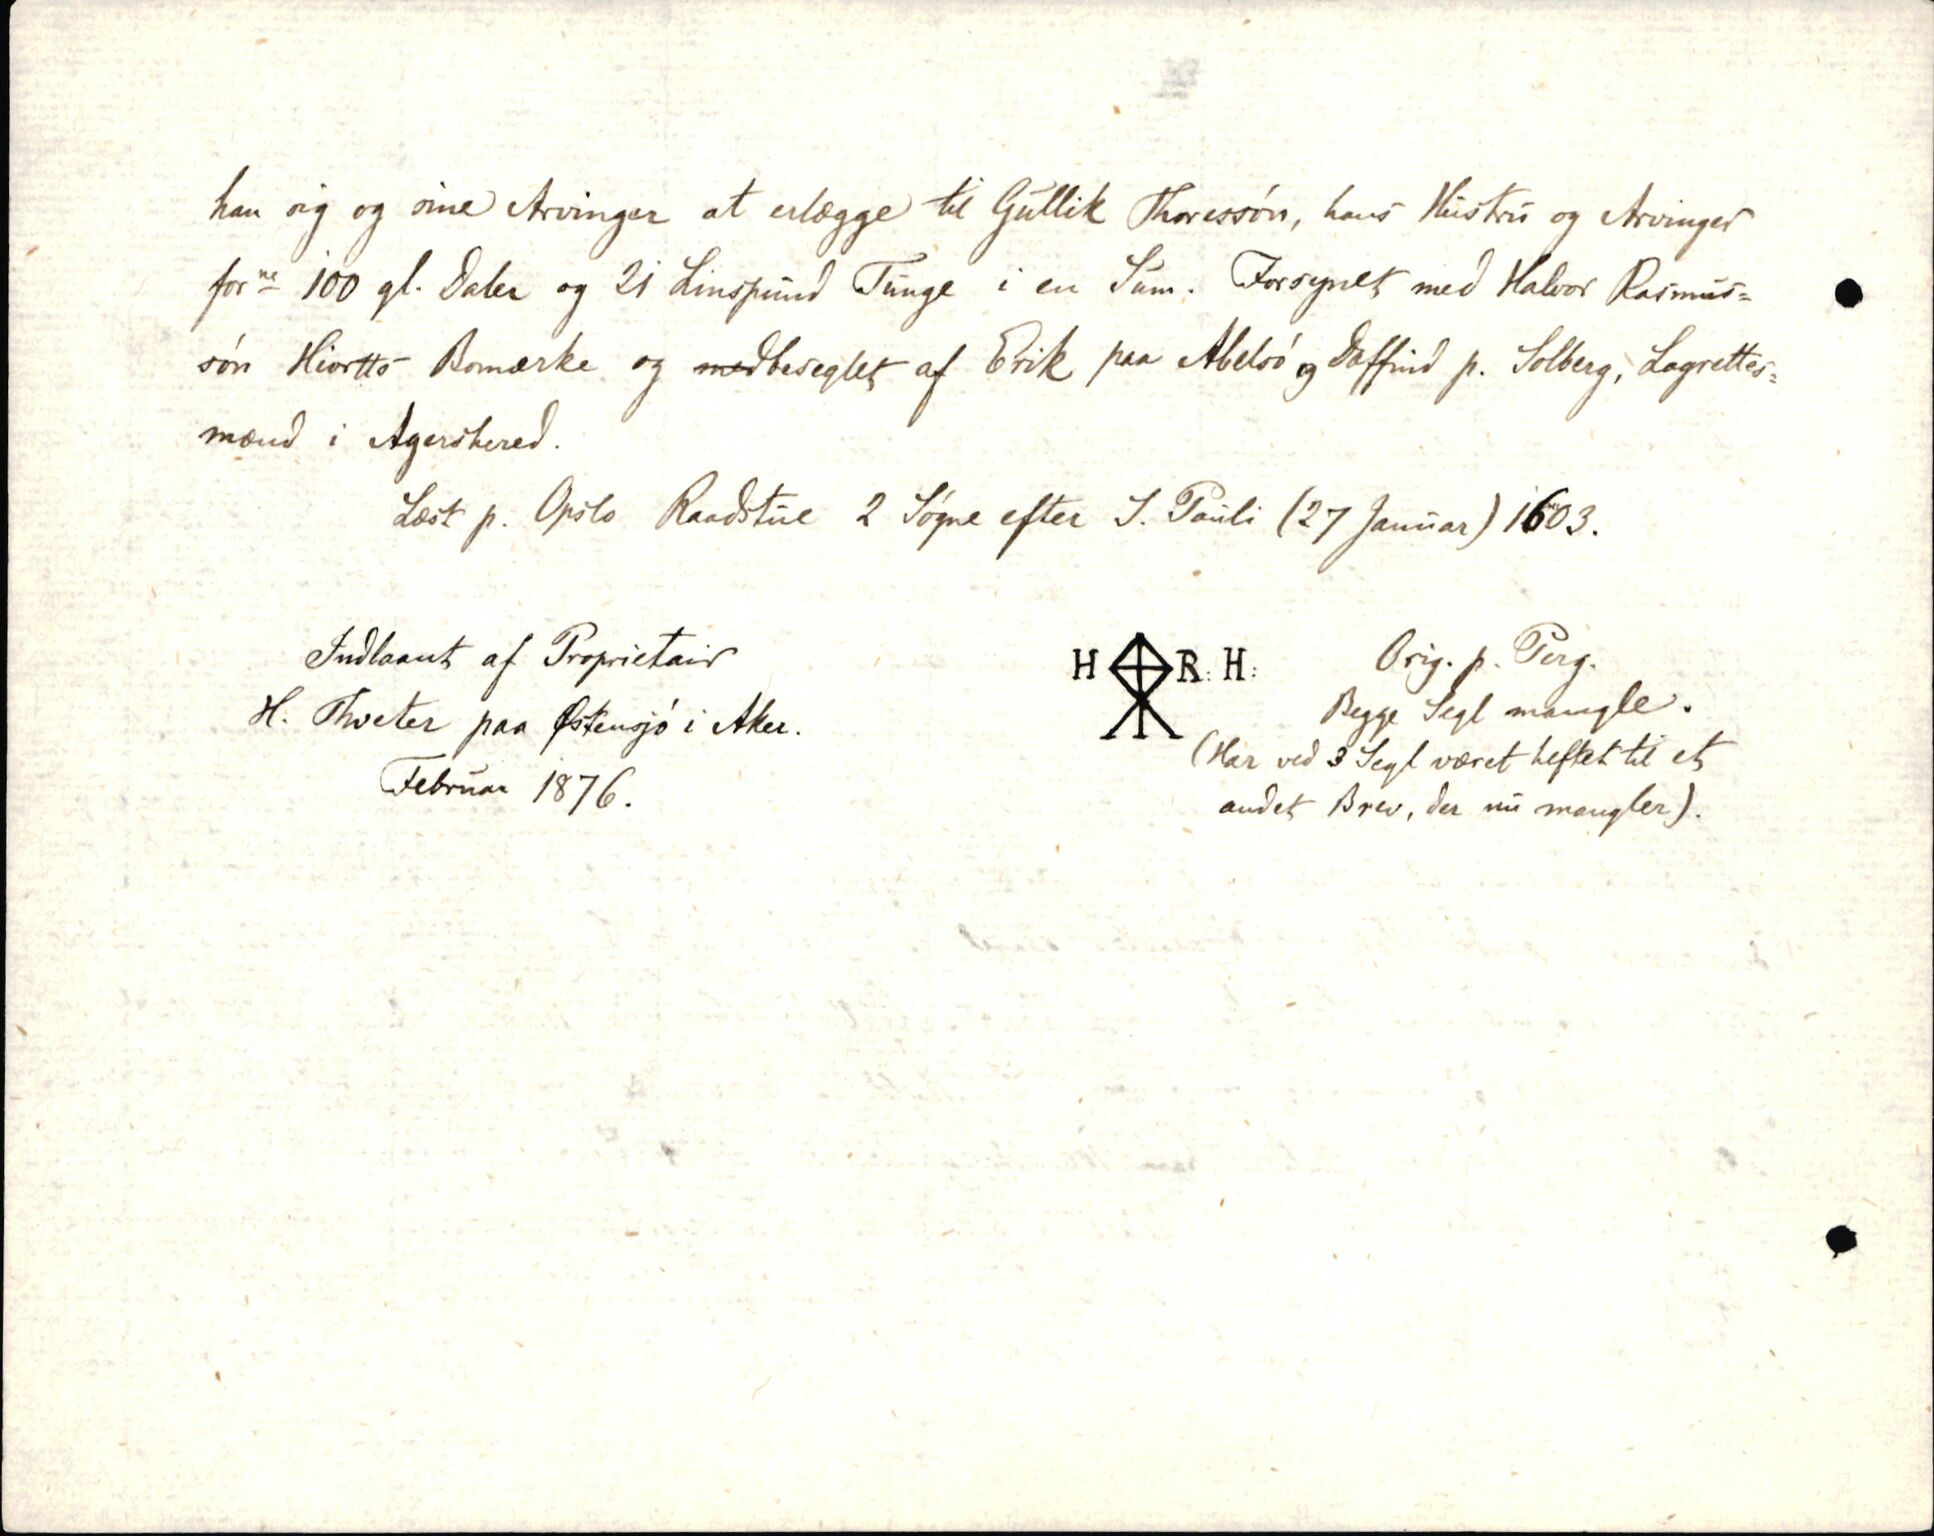 han sig og sine Arvinger at erlægge til Gullik Thoressön, hans Hustru og Arvinger
forne 100 gl. Daler og 21 Linspund Tunge i en Sum. Forsynet med Halvor Rasmus=
sön Hiortts Bomærke og medbeseglet af Erik paa Abelsö og Daffind p. Solberg, Lagrettes=
mænd i Agershered.
Læst p. Opslo Raadstue 2 Søgne efter S. Pauli (27 Januar) 1603.
Indlaant af Proprietair
H. Thveter paa Østensjö i Aker.
Februar 1876.
H R: H:
Orig. p. Perg.
Begge Segl mangle.
(Har ved 3 Segl været heftet til et
andet Brev, der nu mangler).